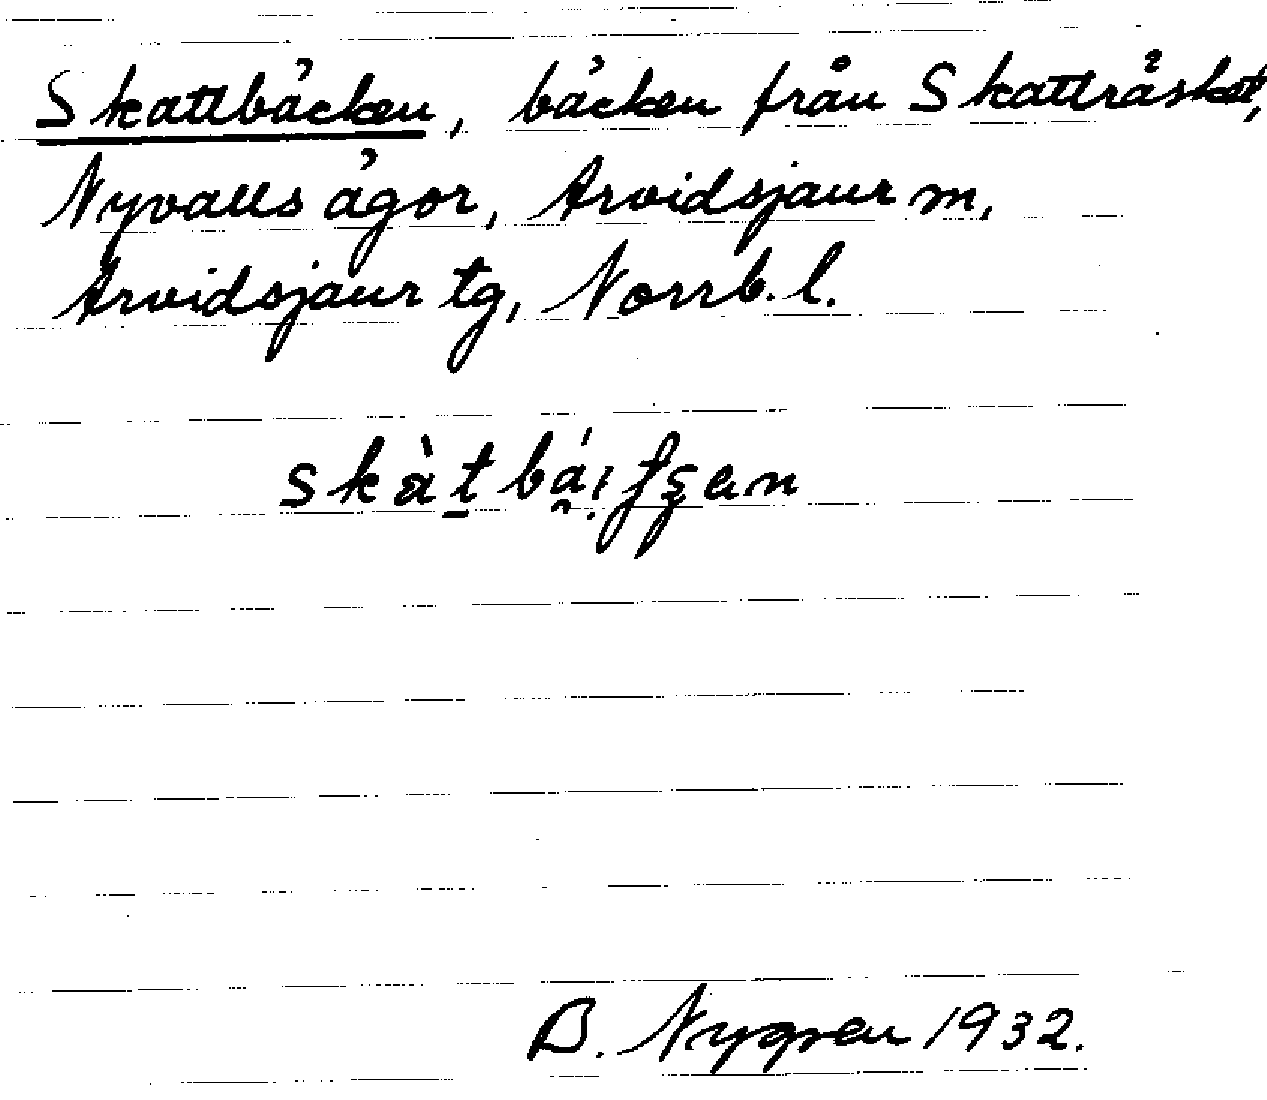 Skattbäcken, bäcken från Skatträsket,
Nyvalls ägor, Arvidsjaur m,
Arvidsjaur tg, Norrb. l.
B. Nygren 1932.